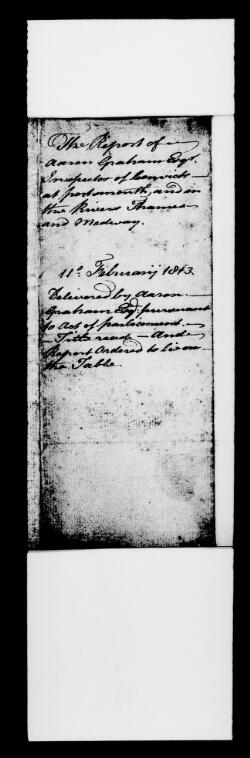 The Report of
Aaron Graham Esqr.
Inspector of Convicts
at portsmouth, and in
the Rivers Thames
and Medway.
11o. February 1813.
Delivered by Aaron
Graham Esqr. pursuant
to Act of parliament.
— Title read — And
Report Ordered to lie on
the Table.